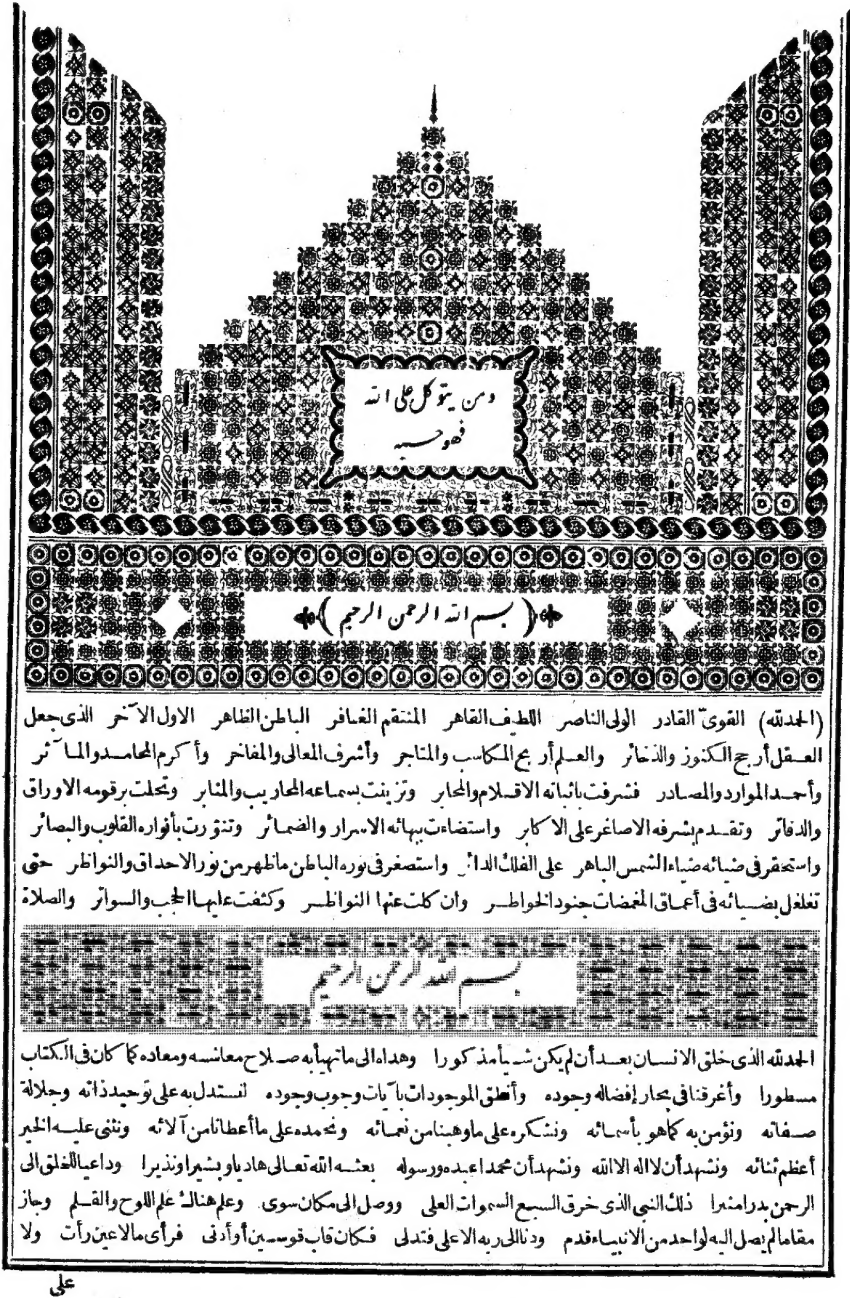 ومن يتوكل على الله
فهو حسبه
(بسم الله الرحمن الرحيم)
(الحمد لله) القوىّ القادر الولى الناصر اللطيف القاهر المنتقم الغافر الباطن الظاهر الاول الآخر الذى جعل
العقل أرجح الكنوز والذخائر والعلم أربح المكاسب والمتاجر وأشرف المعالى والمفاخر وأكرم المحامد والمآثر
وأحمد الموارد والمصادر فشرفت باثباته الاقلام والمحابر وتزينت بسماعه المحاريب والمنابر وتحلت برقومه الاوراق
والدفاتر وتقدم بشرفه الاصاغر على الاكابر واستضاءت ببهائه الاسرار والضمائر وتنوّرت بأنواره القلوب والبصائر
واستحقر فى ضيائه ضياء الشمس الباهر على الفلك الدائر واستصغر فى نوره الباطن ماظهر من نور الاحداق والنواظر حتى
تغلغل بضيائه فى أعماق المغمضات جنود الخواطر وان كلت عنها النواظر وكثفت عليها الحجب والسواتر والصلاة
بسم الله الرحمن الرحيم
الحمد لله الذى خلق الانسان بعد أن لم يكن شيأ مذكورا وهداه الى ماتهيأ به صلاح معاشه ومعاده كما كان فى الكتاب
مسطورا وأغرقنا فى بحار إفضاله وجوده وأنطق الموجودات بآيات وجوب وجوده لنستدل به على توحيد ذاته وجلالة
صفاته ونؤمن به كماهو بأسمائه ونشكره على ماوهبنا من نعمائه ونحمده على ماأعطانا من آلائه ونثنى عليه الخير
أعظم ثنائه ونشهد أن لااله الاالله ونشهد أن محمدا عبده ورسوله بعثه الله تعالى هاديا وبشيرا ونذيرا وداعيا للخلق الى
الرحمن بدرا منيرا ذلك النبى الذى خرق السبع السموات العلى ووصل الى مكان سوى وعلم هنالك علم اللوح والقلم وجاز
مقاما لم يصل اليه لواحد من الانبياء قدم ودنا الى ربه الاعلى فتدلى فكان قاب قوسين أوأدنى فرأى مالاعين رأت ولا
على